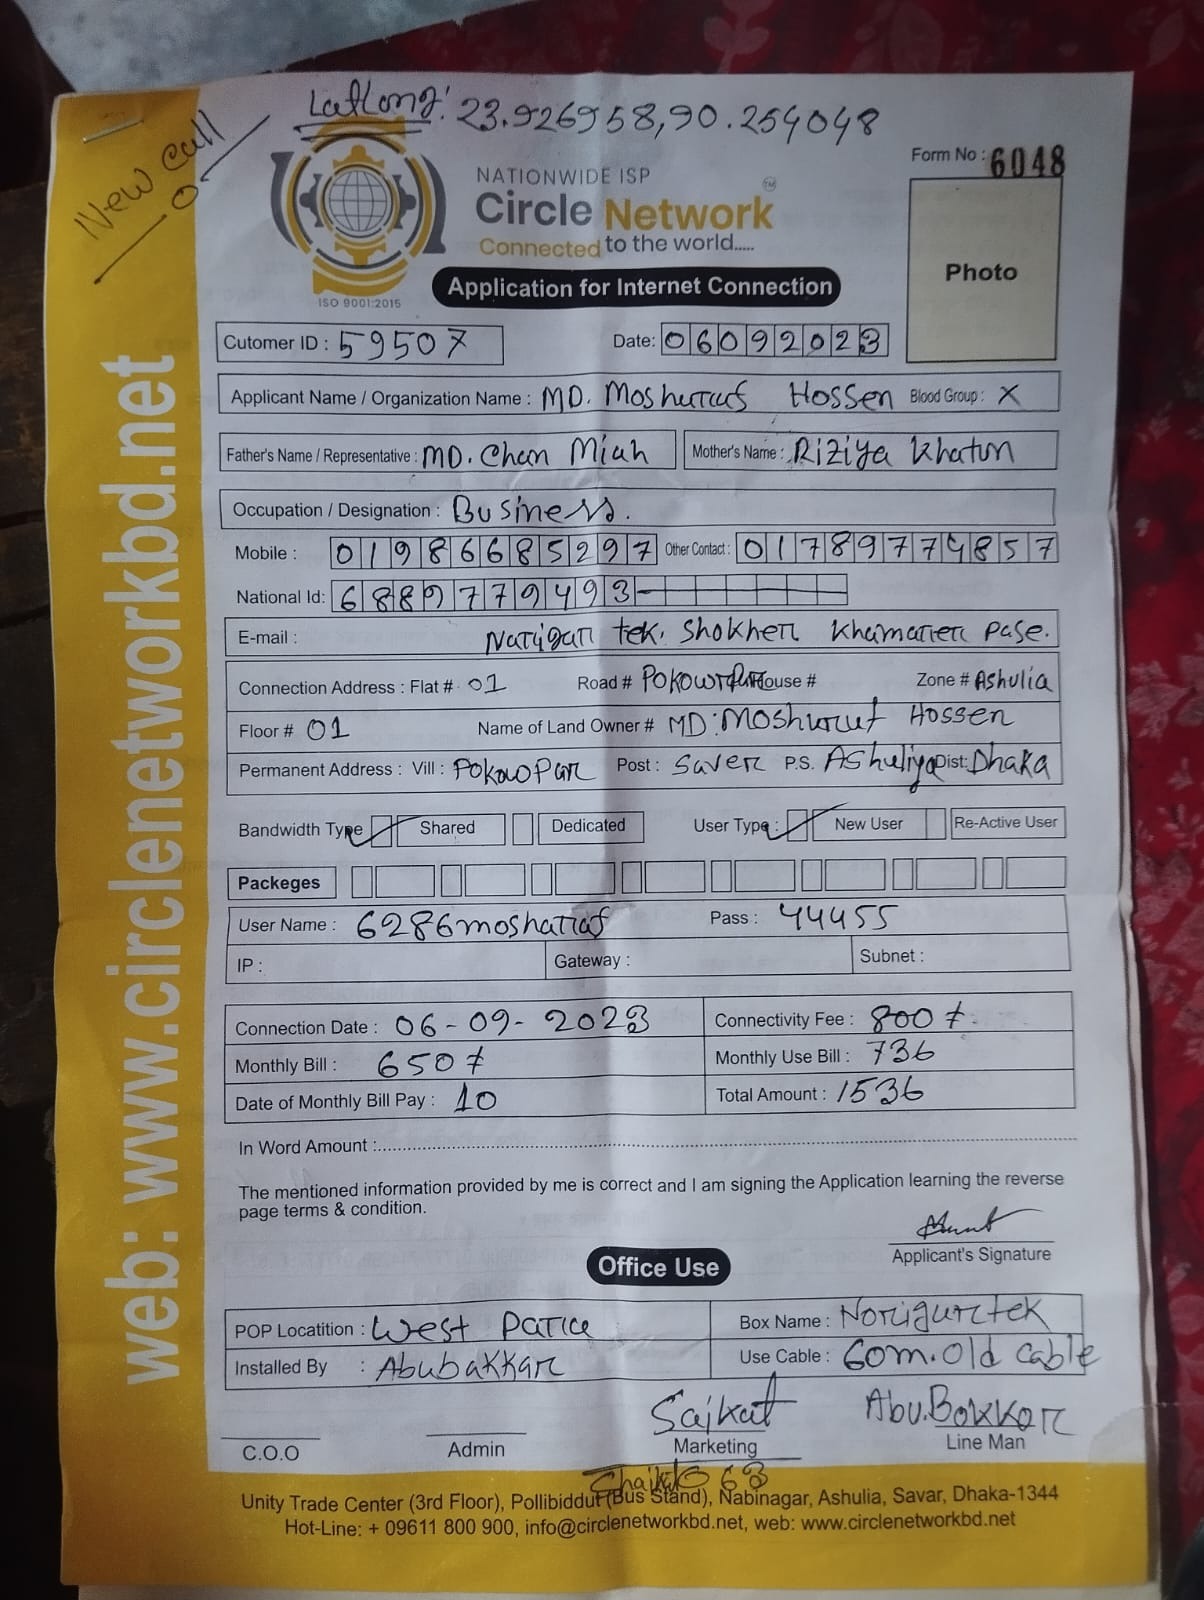 LatLong: 23.926958,90.254048
New Call
Form No : 6048
NATIONWIDE ISP
Circle Network
TM
Connected to the world.....
ISO 9001:2015
Application for Internet Connection
Photo
Cutomer ID : 59507 Date: 06092023
Applicant Name / Organization Name : MD. Mosharraf Hossen Blood Group : X
Father's Name / Representative : MD. Chan Miah Mother's Name : Riziya Khatun
Occupation / Designation : Business.
Mobile : 01986685297 Other Contact : 01789774857
National Id: 6889779493
E-mail : Narigar tek. Shokher khamarer pase.
Connection Address : Flat # 01 Road # Pokowrpar House # Zone # Ashulia
Floor # 01 Name of Land Owner # MD: Moshurut Hossen
Permanent Address : Vill : Pokaopar Post : Saver P.S. Ashuliya Dist: Dhaka
Bandwidth Type Shared Dedicated User Type : New User Re-Active User
Packeges
User Name : 6286mosharraf Pass : 44455
IP : Gateway : Subnet :
Connection Date : 06-09-2023 Connectivity Fee : 800/=
Monthly Bill : 650/= Monthly Use Bill : 736
Date of Monthly Bill Pay : 10 Total Amount : 1536
In Word Amount :
The mentioned information provided by me is correct and I am signing the Application learning the reverse
page terms & condition.
Applicant's Signature
Office Use
POP Locatition : West Parice Box Name : Norigurtek
Installed By : Abubakkar Use Cable : 60m. Old Cable
Saikat Abu.Bokkor
C.O.O Admin Marketing Line Man
63
Unity Trade Center (3rd Floor), Pollibiddut (Bus Stand), Nabinagar, Ashulia, Savar, Dhaka-1344
Hot-Line: + 09611 800 900, info@circlenetworkbd.net, web: www.circlenetworkbd.net
web: www.circlenetworkbd.net